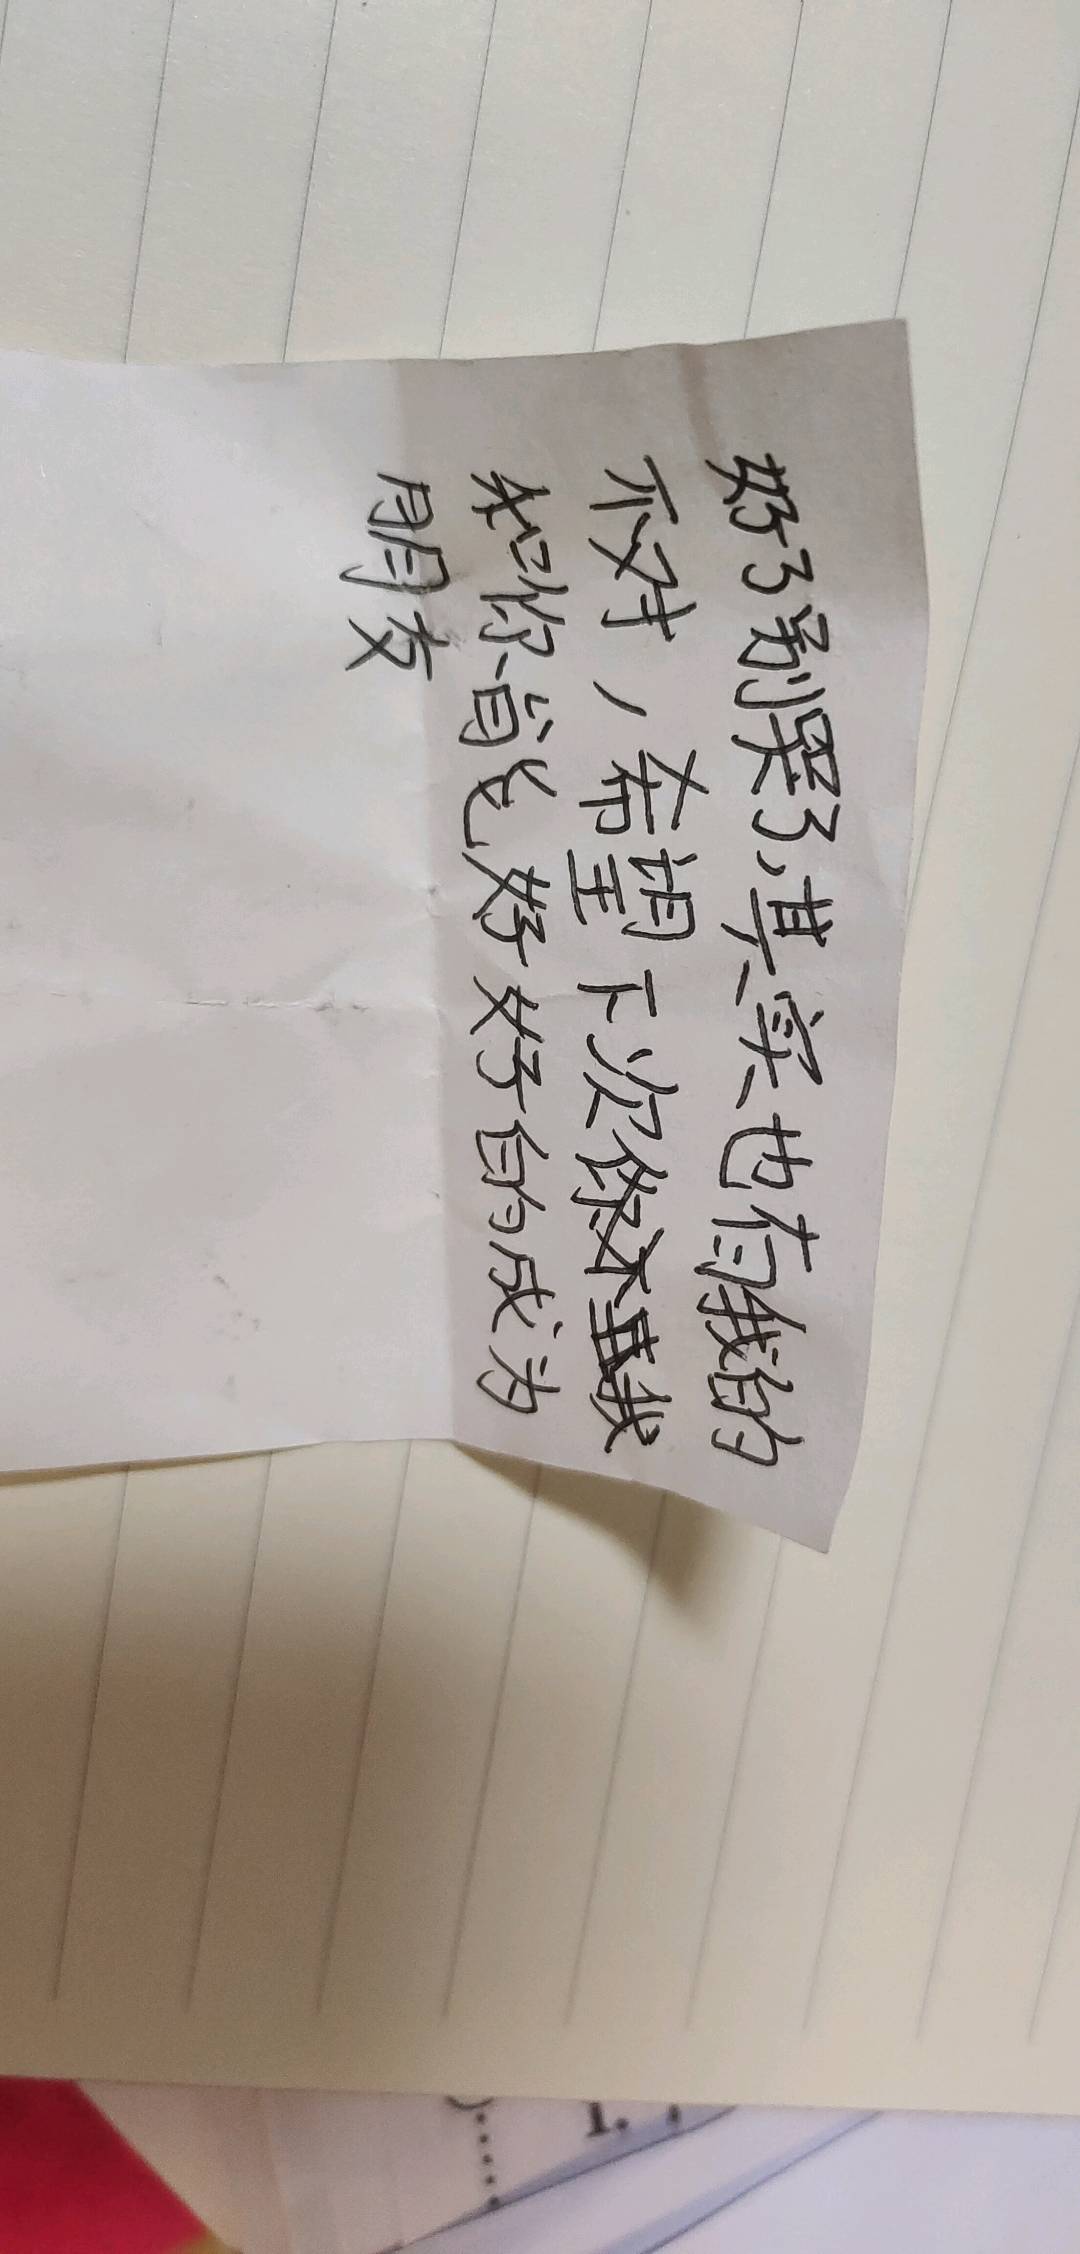 好了别哭了,其实也有我的
不对,希望下次我
和你能好好的成为
朋友
1.